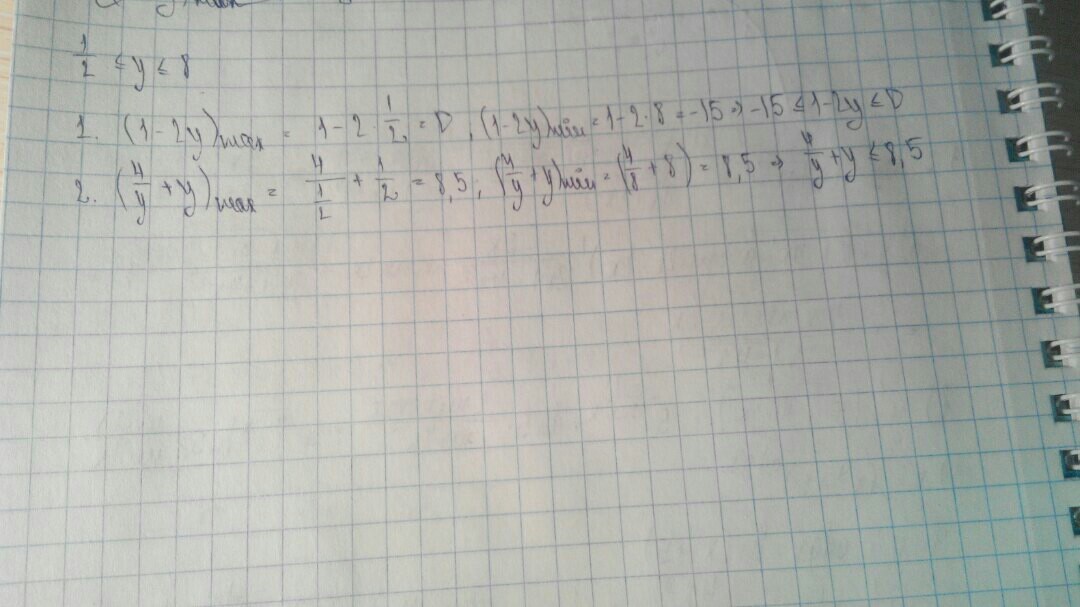 1/2 ≤ y ≤ 8
1. (1-2y)max = 1-2·1/2 = 0, (1-2y)min = 1-2·8 = -15 ⇒ -15 ≤ 1-2y ≤ 0
2. (4/y + y)max = 4/(1/2) + 1/2 = 8,5; (4/y + y)min = (4/8 + 8) = 8,5 ⇒ 4/y + y ≤ 8,5